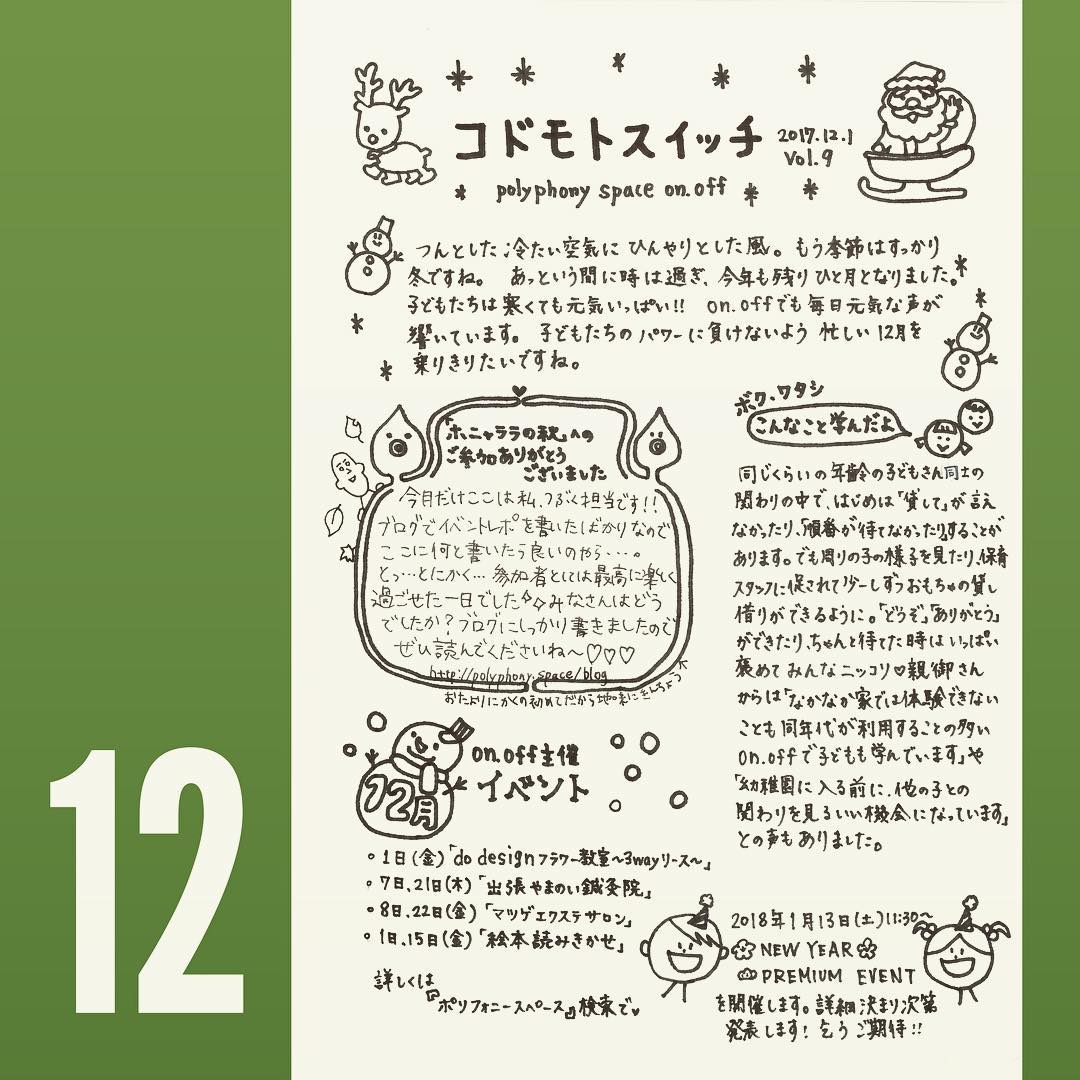 コドモトスイッチ
2017.12.1
Vol.9
polyphony space on.off
つんとした冷たい空気に ひんやりとした風。もう季節はすっかり
冬ですね。 あっという間に時は過ぎ、今年も残りひと月となりました。
子どもたちは寒くても元気いっぱい!! on.offでも毎日元気な声が
響いています。 子どもたちのパワーに負けないよう 忙しい12月を
乗りきりたいですね。
「ホニャララの秋」への
ご参加ありがとう
ございました
今月だけここは私、つぶく担当です!!
ブログでイベントレポを書いたばかりなので
ここに何と書いたら良いのやら…。
とっ…とにかく… 参加者としては最高に楽しく
過ごせた一日でした◇◇みなさんはどう
でしたか?ブログにしっかり書きましたので
ぜひ読んでくださいね〜♡♡♡
http://polyphony.space/blog
おたよりにかくの初めてだから地味にきんちょう
ボク、ワタシ
こんなこと学んだよ
同じくらいの年齢の子どもさん同士の
関わりの中で、はじめは「貸して」が言え
なかったり、「順番が待てなかったり」することが
あります。でも周りの子の様子を見たり、保育
スタッフに促されて少ーしずつおもちゃの貸し
借りができるように。「どうぞ」「ありがとう」
ができたり、ちゃんと待てた時はいっぱい
褒めて みんなニッコリ♥親御さん
からは「なかなか家では体験できない
ことも同年代が利用することの多い
on.offで子どもも学んでいます」や
「幼稚園に入る前に、他の子との
関わりを見るいい機会になっています」
との声もありました。
12月
on.off主催
イベント
・1日(金)「do designフラワー教室〜3wayリース〜」
・7日、21日(木)「出張やまのい鍼灸院」
・8日、22日(金)「マツゲエクステサロン」
・1日、15日(金)「絵本読みきかせ」
詳しくは
『ポリフォニースペース』検索で♥
2018年1月13日(土)11:30〜
NEW YEAR
PREMIUM EVENT
を開催します。詳細決まり次第
発表します! 乞うご期待!!
12